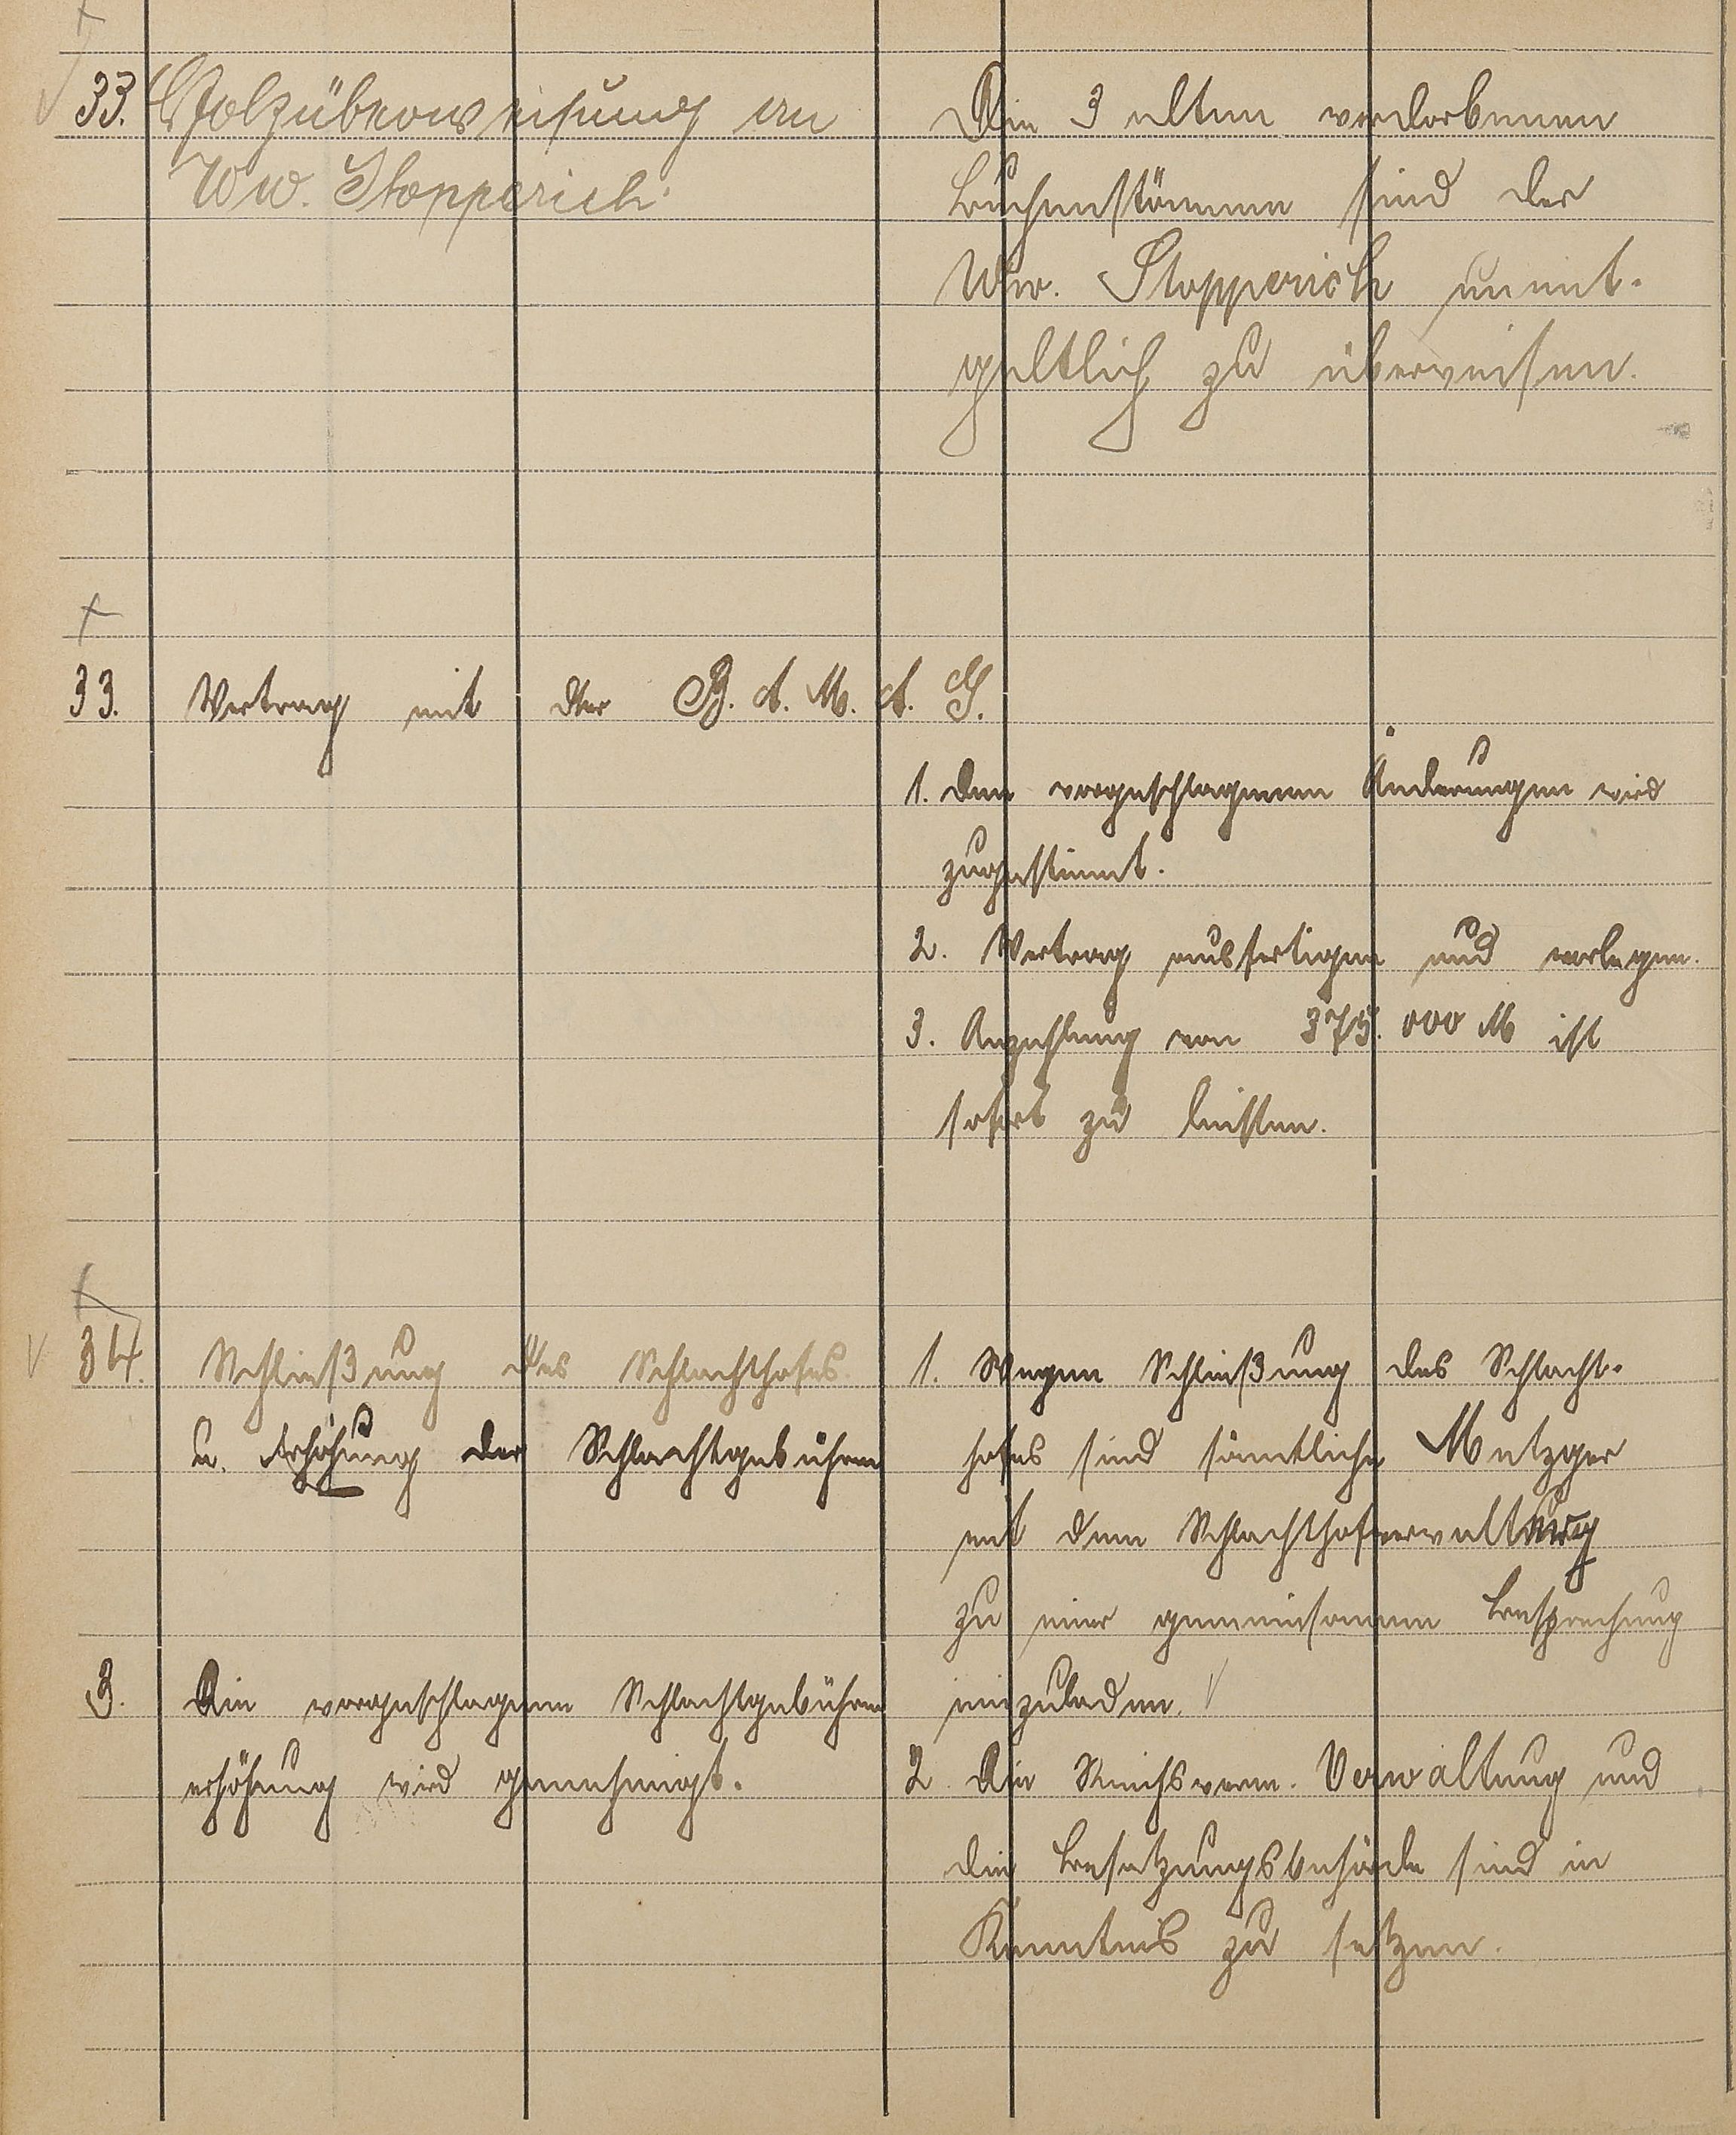 33. Holzüberweisung an
Ww. Stopperich
Die 3 alten verdorbenen
Buchenstämme sind der
Ww. Stopperich unent-
geltlich zu überweisen.
33. Vertrag mit der B. A. M. A. G.
1. Den vorgeschlagenen Änderungen wird
zugestimmt.
2. Vertrag ausfertigen und vorlegen.
3. Anzahlung von 375.000 M ist
sofort zu leisten.
34. Schließung des Schlachthofes
u. Erhöhung der Schlachtgebühren
1. Wegen Schließung des Schlacht-
hofes sind sämtliche Metzger
mit dem Schlachthofverwaltung
zu einer gemeinsamen Besprechung
einzuladen.
2. Die Reichsverm. Verwaltung und
die Besetzungsbehörde sind in
Kenntnis zu setzen.
3. Die vorgeschlagene Schlachtgebühren
erhöhung wird genehmigt.